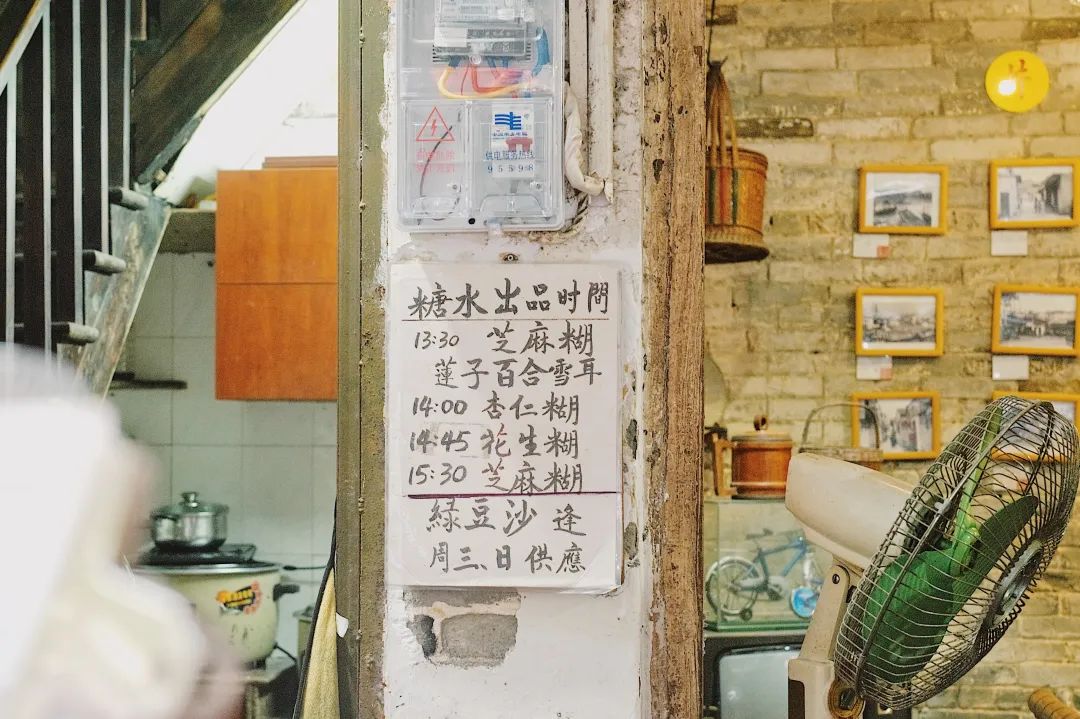 供电服务热线
95598
糖水出品时間
13:30 芝麻糊
蓮子百合雪耳
14:00 杏仁糊
14:45 花生糊
15:30 芝麻糊
緑豆沙 逢
周三、日供應